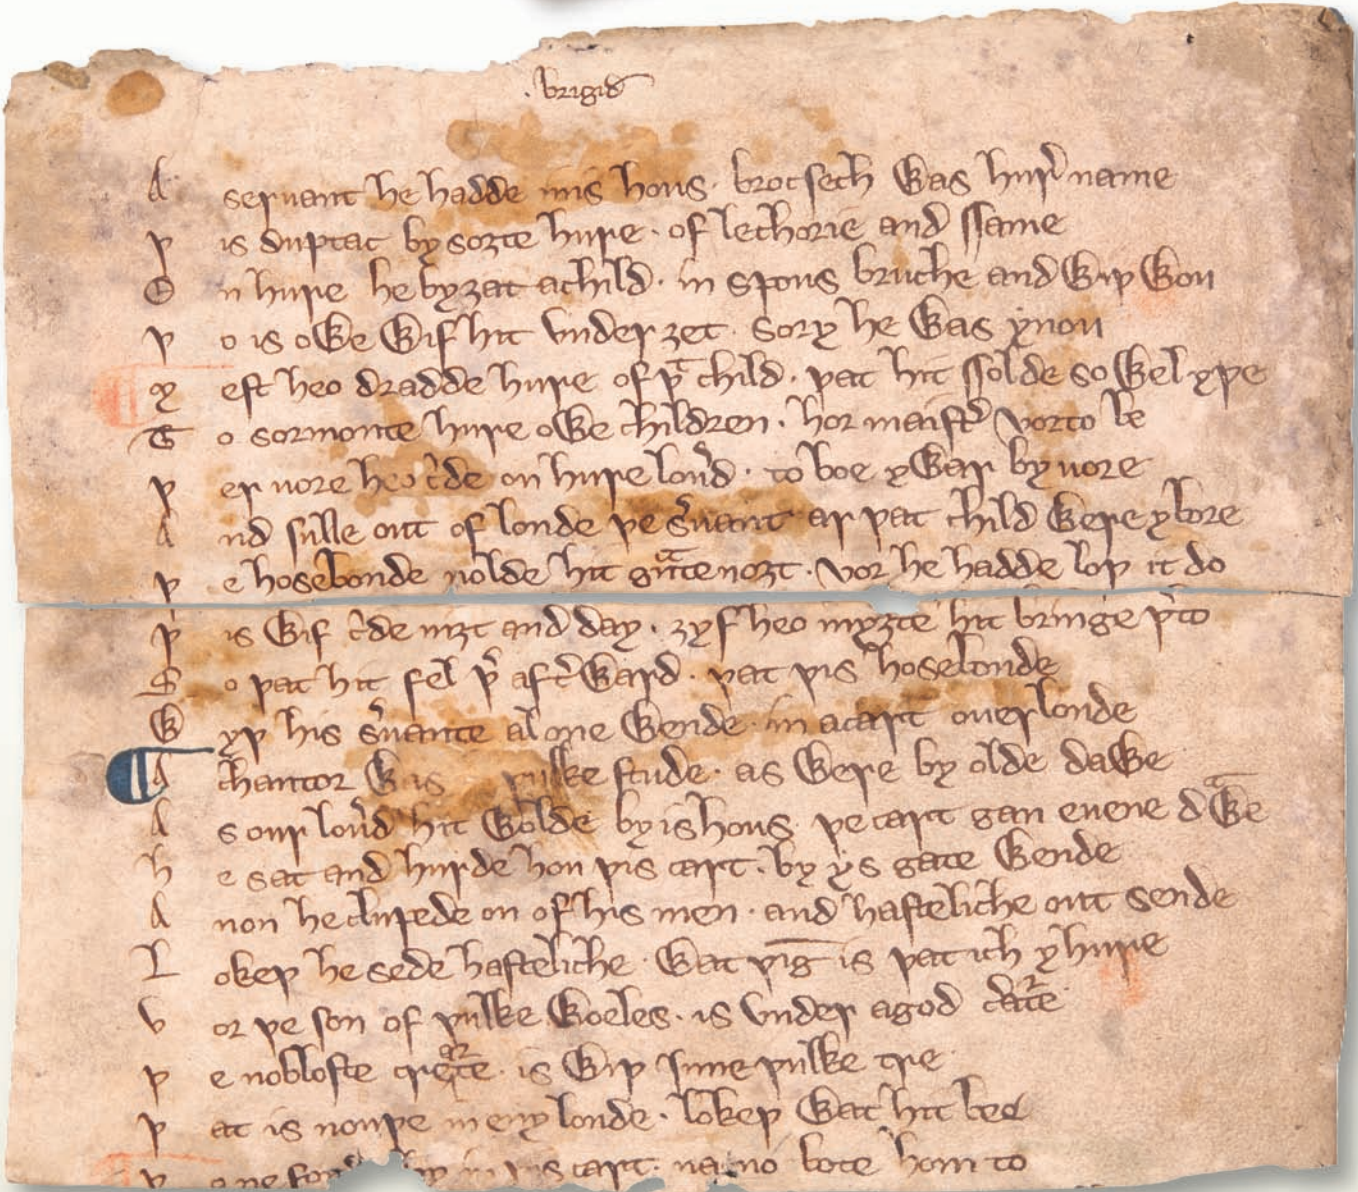 . brigid
A seruant he hadde inis hous · brocsech was hure name
þ is duptac by sozte hure · of lechorie and ssame
O n hure he byzat achild · in spous bruche and wiþ wou
þ o is owe wif hit vnder zet · Sory he was ynou
M est heo dradde hure of þt child · þat hit ssolde so wel yþe
T o sormonte hure owe children · hor maistr vorto be
þ er uore heo c'de on hure lou'd · to boe ywar by uore
A nd sulle out of londe þe s'uant ar þat child were ybore
þ e hosebonde nolde hit g'nte nozt · vor he hadde loþ it do
þ is wif c'de nizt and day · zyf heo myzte hit bringe þ'to
S o þat hit fel þ' aft'ward · þat þis hosebonde
W yþ his s'uante alone wende · in acart ouer londe
A chantor was þulke stude · as were by olde dawe
A s our lou'd hit wolde by is hous þe cart gan euene dawe
h e sat and hurde hou þis cart · by ys gate wende
A non he clupede on of his men · and hasteliche out sende
L okeþ he sede hasteliche · wat þig is þat ich yhure
V or þe son of þulke woeles · is vnder agod cate
þ e nobloste create · is wiþ Inne þulke tre
þ at is nouþe in eny londe · lokeþ wat hit be
in þis cart · na no bote hom to